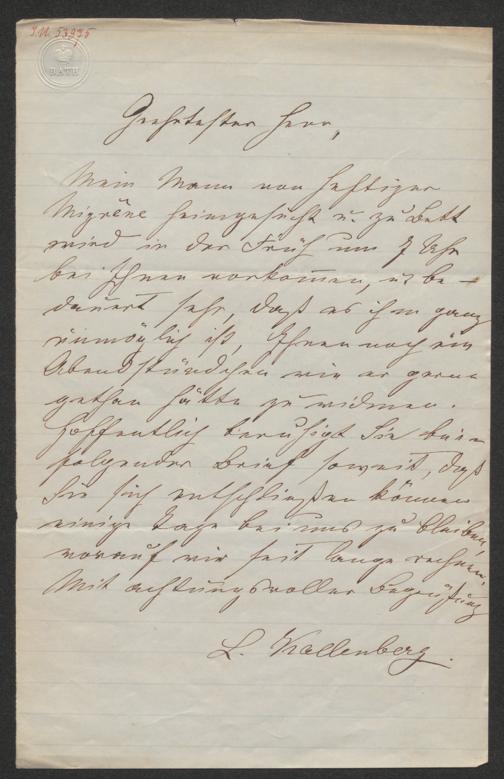 I.N. 53935
BATH
Geehrtester Herr,
Mein Mann von heftiger
Migräne heimgesucht u. zu Bett
wird in der Früh um 7 Uhr
bei Ihnen vorkommen, u. be-
dauert sehr, daß es ihm ganz
unmöglich ist, Ihnen noch ein
Abendstündchen wie er gerne
gethan hätte zu widmen.
Hoffentlich beruhigt Sie bei-
folgender Brief soweit, daß
Sie sich entschließen können
einige Tage bei uns zu bleiben,
worauf wir seit lange rechnen.
Mit achtungsvoller Begrüßung
L. Kallenberg.